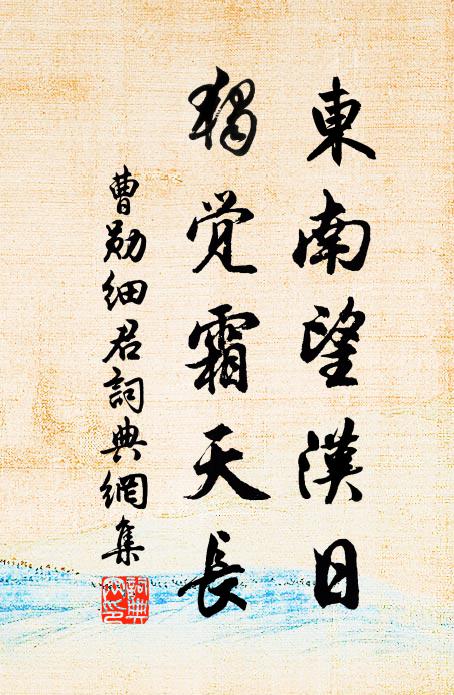 東南望漢日
獨覚霜天長
曹勛細君詞典網集